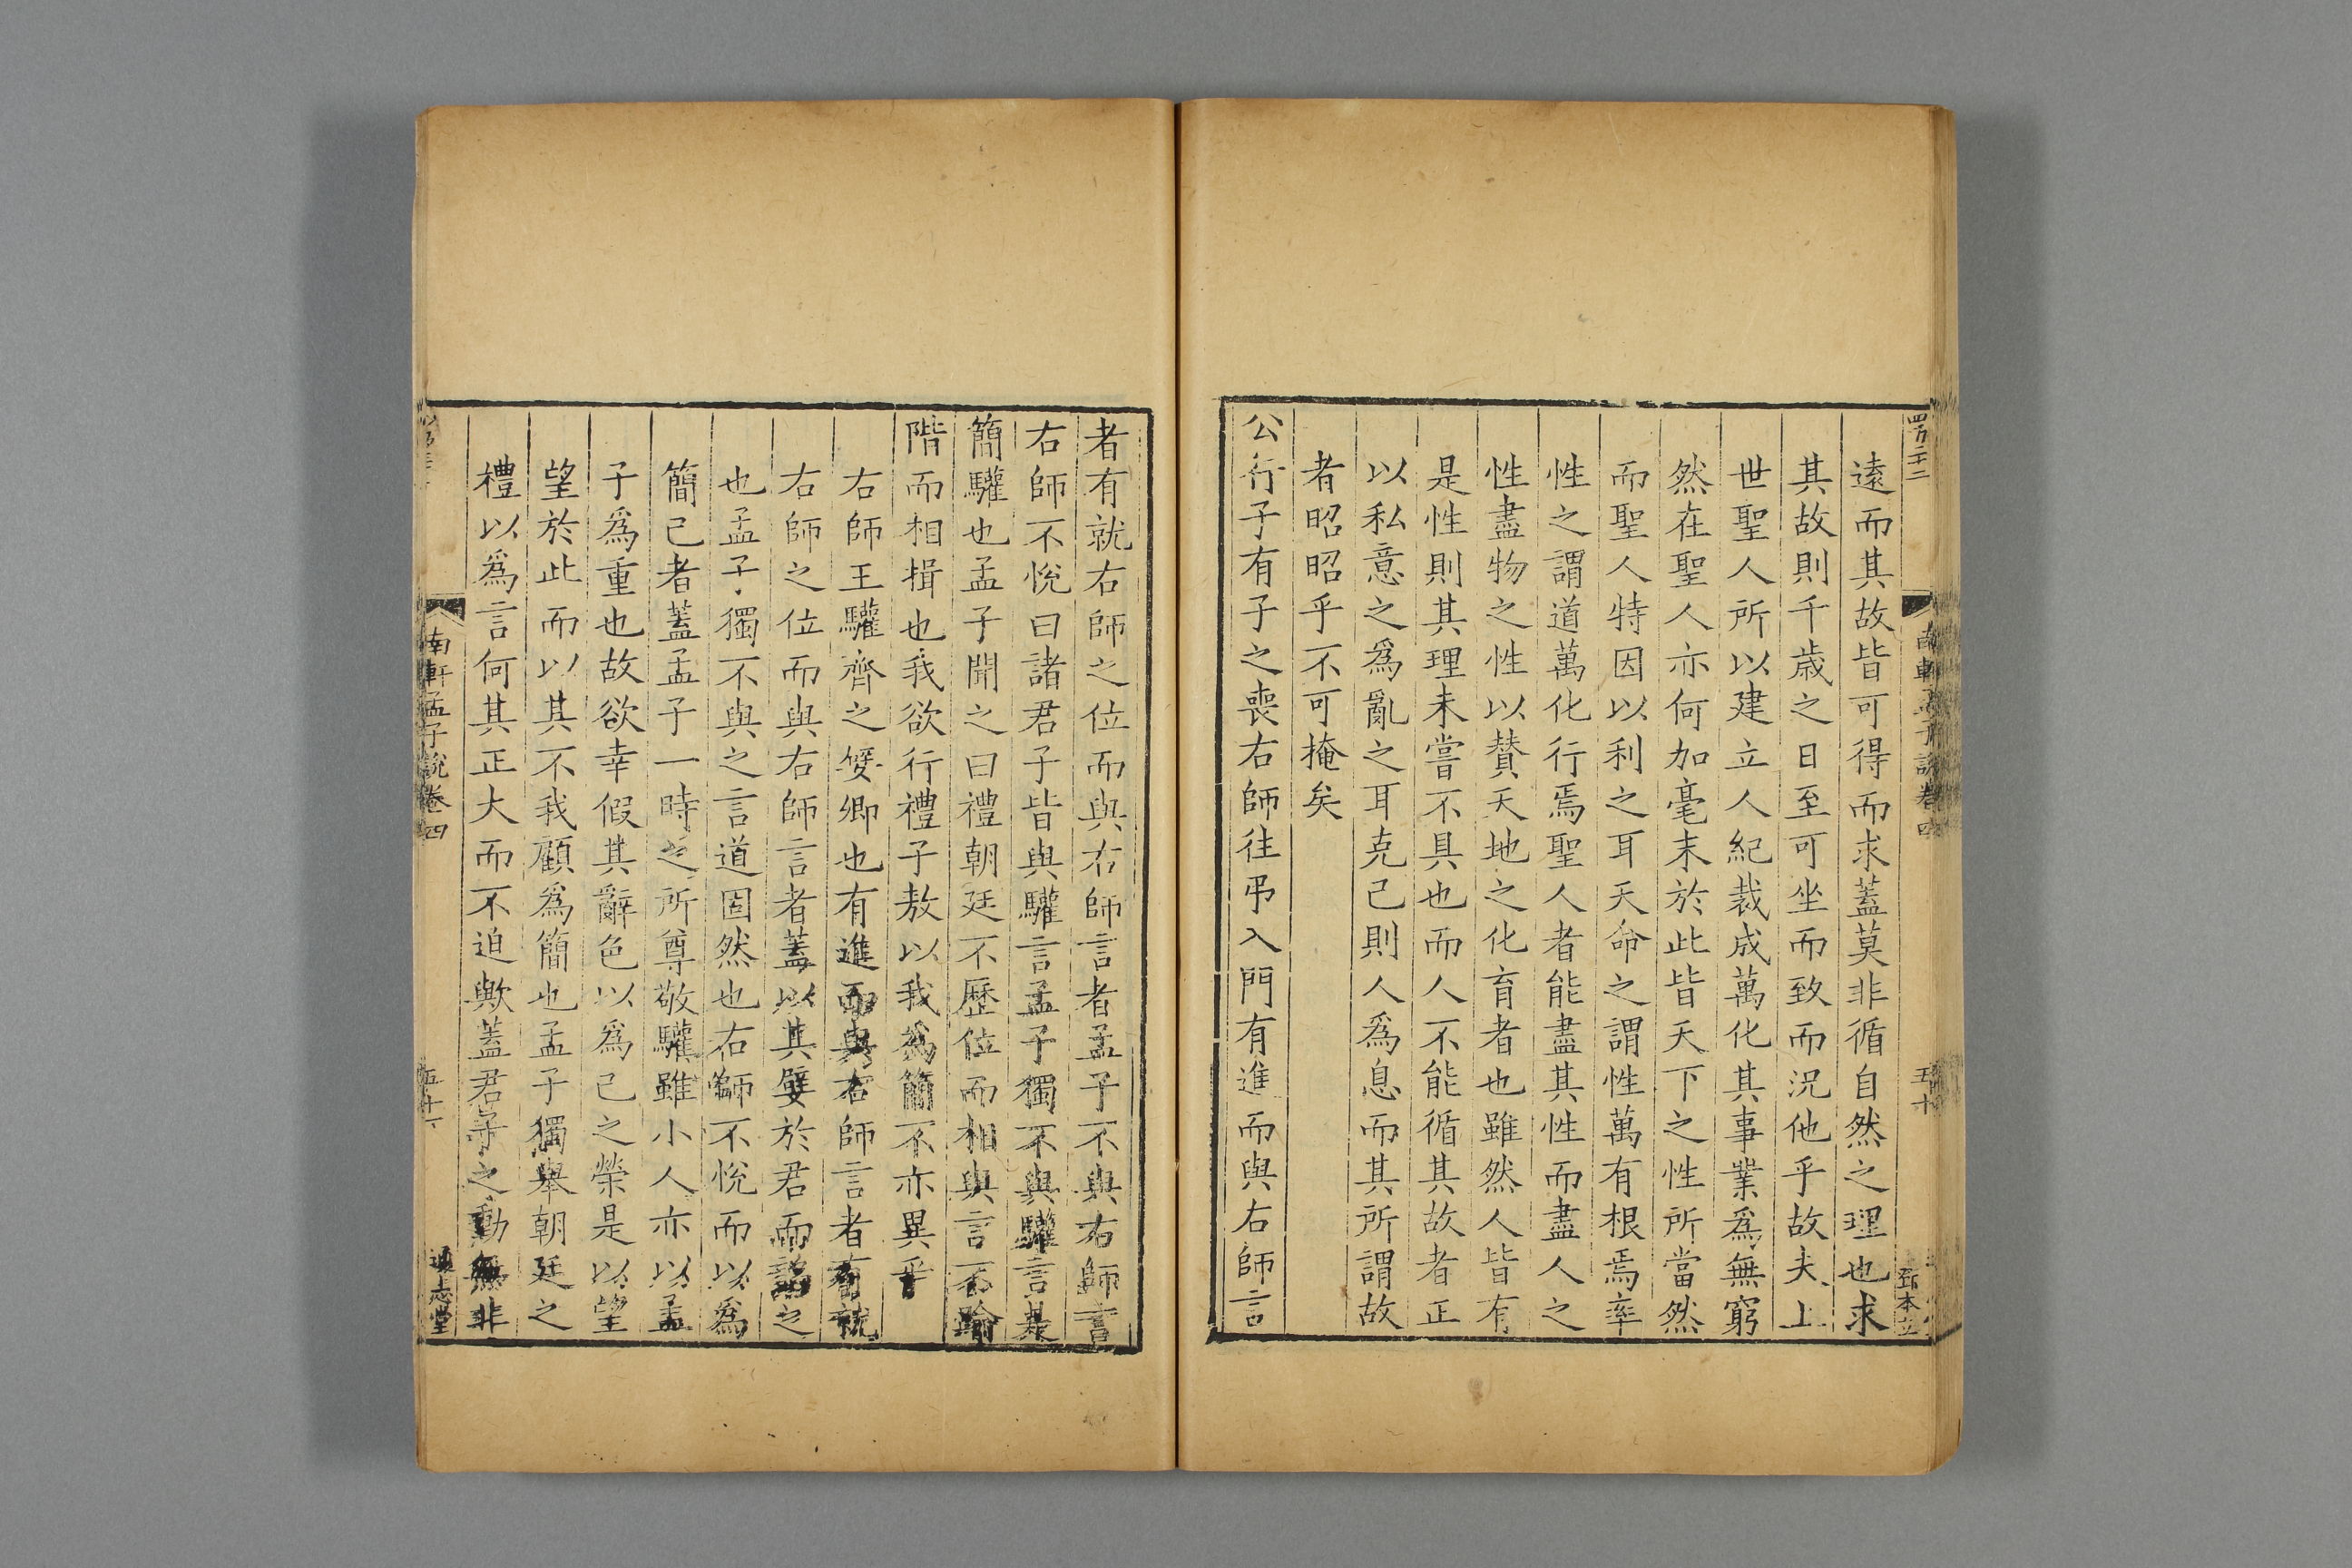 遠而其故皆可得而求蓋莫非循自然之理也求
其故則千歲之日至可坐而致而況他乎故夫上
世聖人所以建立人紀裁成萬化其事業爲無窮
然在聖人亦何加毫末於此皆天下之性所當然
而聖人特因以利之耳天命之謂性萬有根焉率
性之謂道萬化行焉聖人者能盡其性而盡人之
性盡物之性以贊天地之化育者也雖然人皆有
是性則其理未嘗不具也而人不能循其故者正
以私意之爲亂之耳克己則人爲息而其所謂故
者昭昭乎不可掩矣
公行子有子之喪右師往弔入門有進而與右師言
者有就右師之位而與右師言者孟子不與右師言
右師不悅曰諸君子皆與驩言孟子獨不與驩言是
簡驩也孟子聞之曰禮朝廷不歷位而相與言不踰
階而相揖也我欲行禮子敖以我爲簡不亦異乎
右師王驩齊之嬖卿也有進而與右師言者有就
右師之位而與右師言者蓋以其嬖於君而諂之
也孟子獨不與之言道固然也右師不悅而以爲
簡己者蓋孟子一時之所尊敬驩雖小人亦以孟
子爲重也故欲幸假其辭色以爲己之榮是以望
望於此而以其不我顧爲簡也孟子獨舉朝廷之
禮以爲言何其正大而不迫歟蓋君子之動無非
南軒孟子說卷四
通志堂